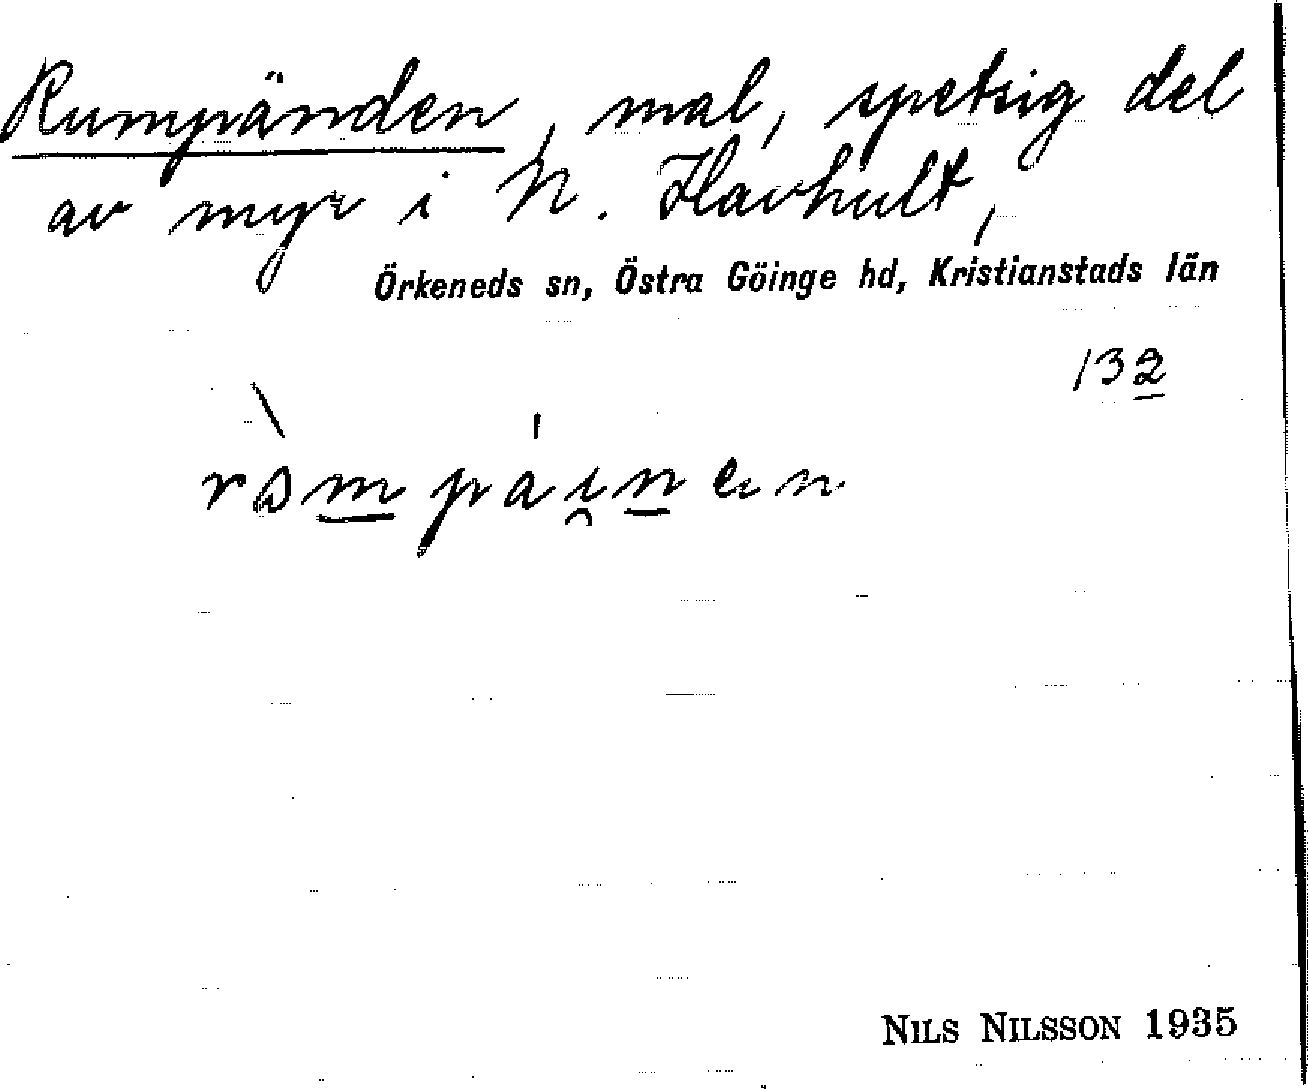 Rumpänden, mal, spetsig del
av myr i N. Havhult,
Örkeneds sn, Östra Göinge hd, Kristianstads län
132
NILS NILSSON 1935